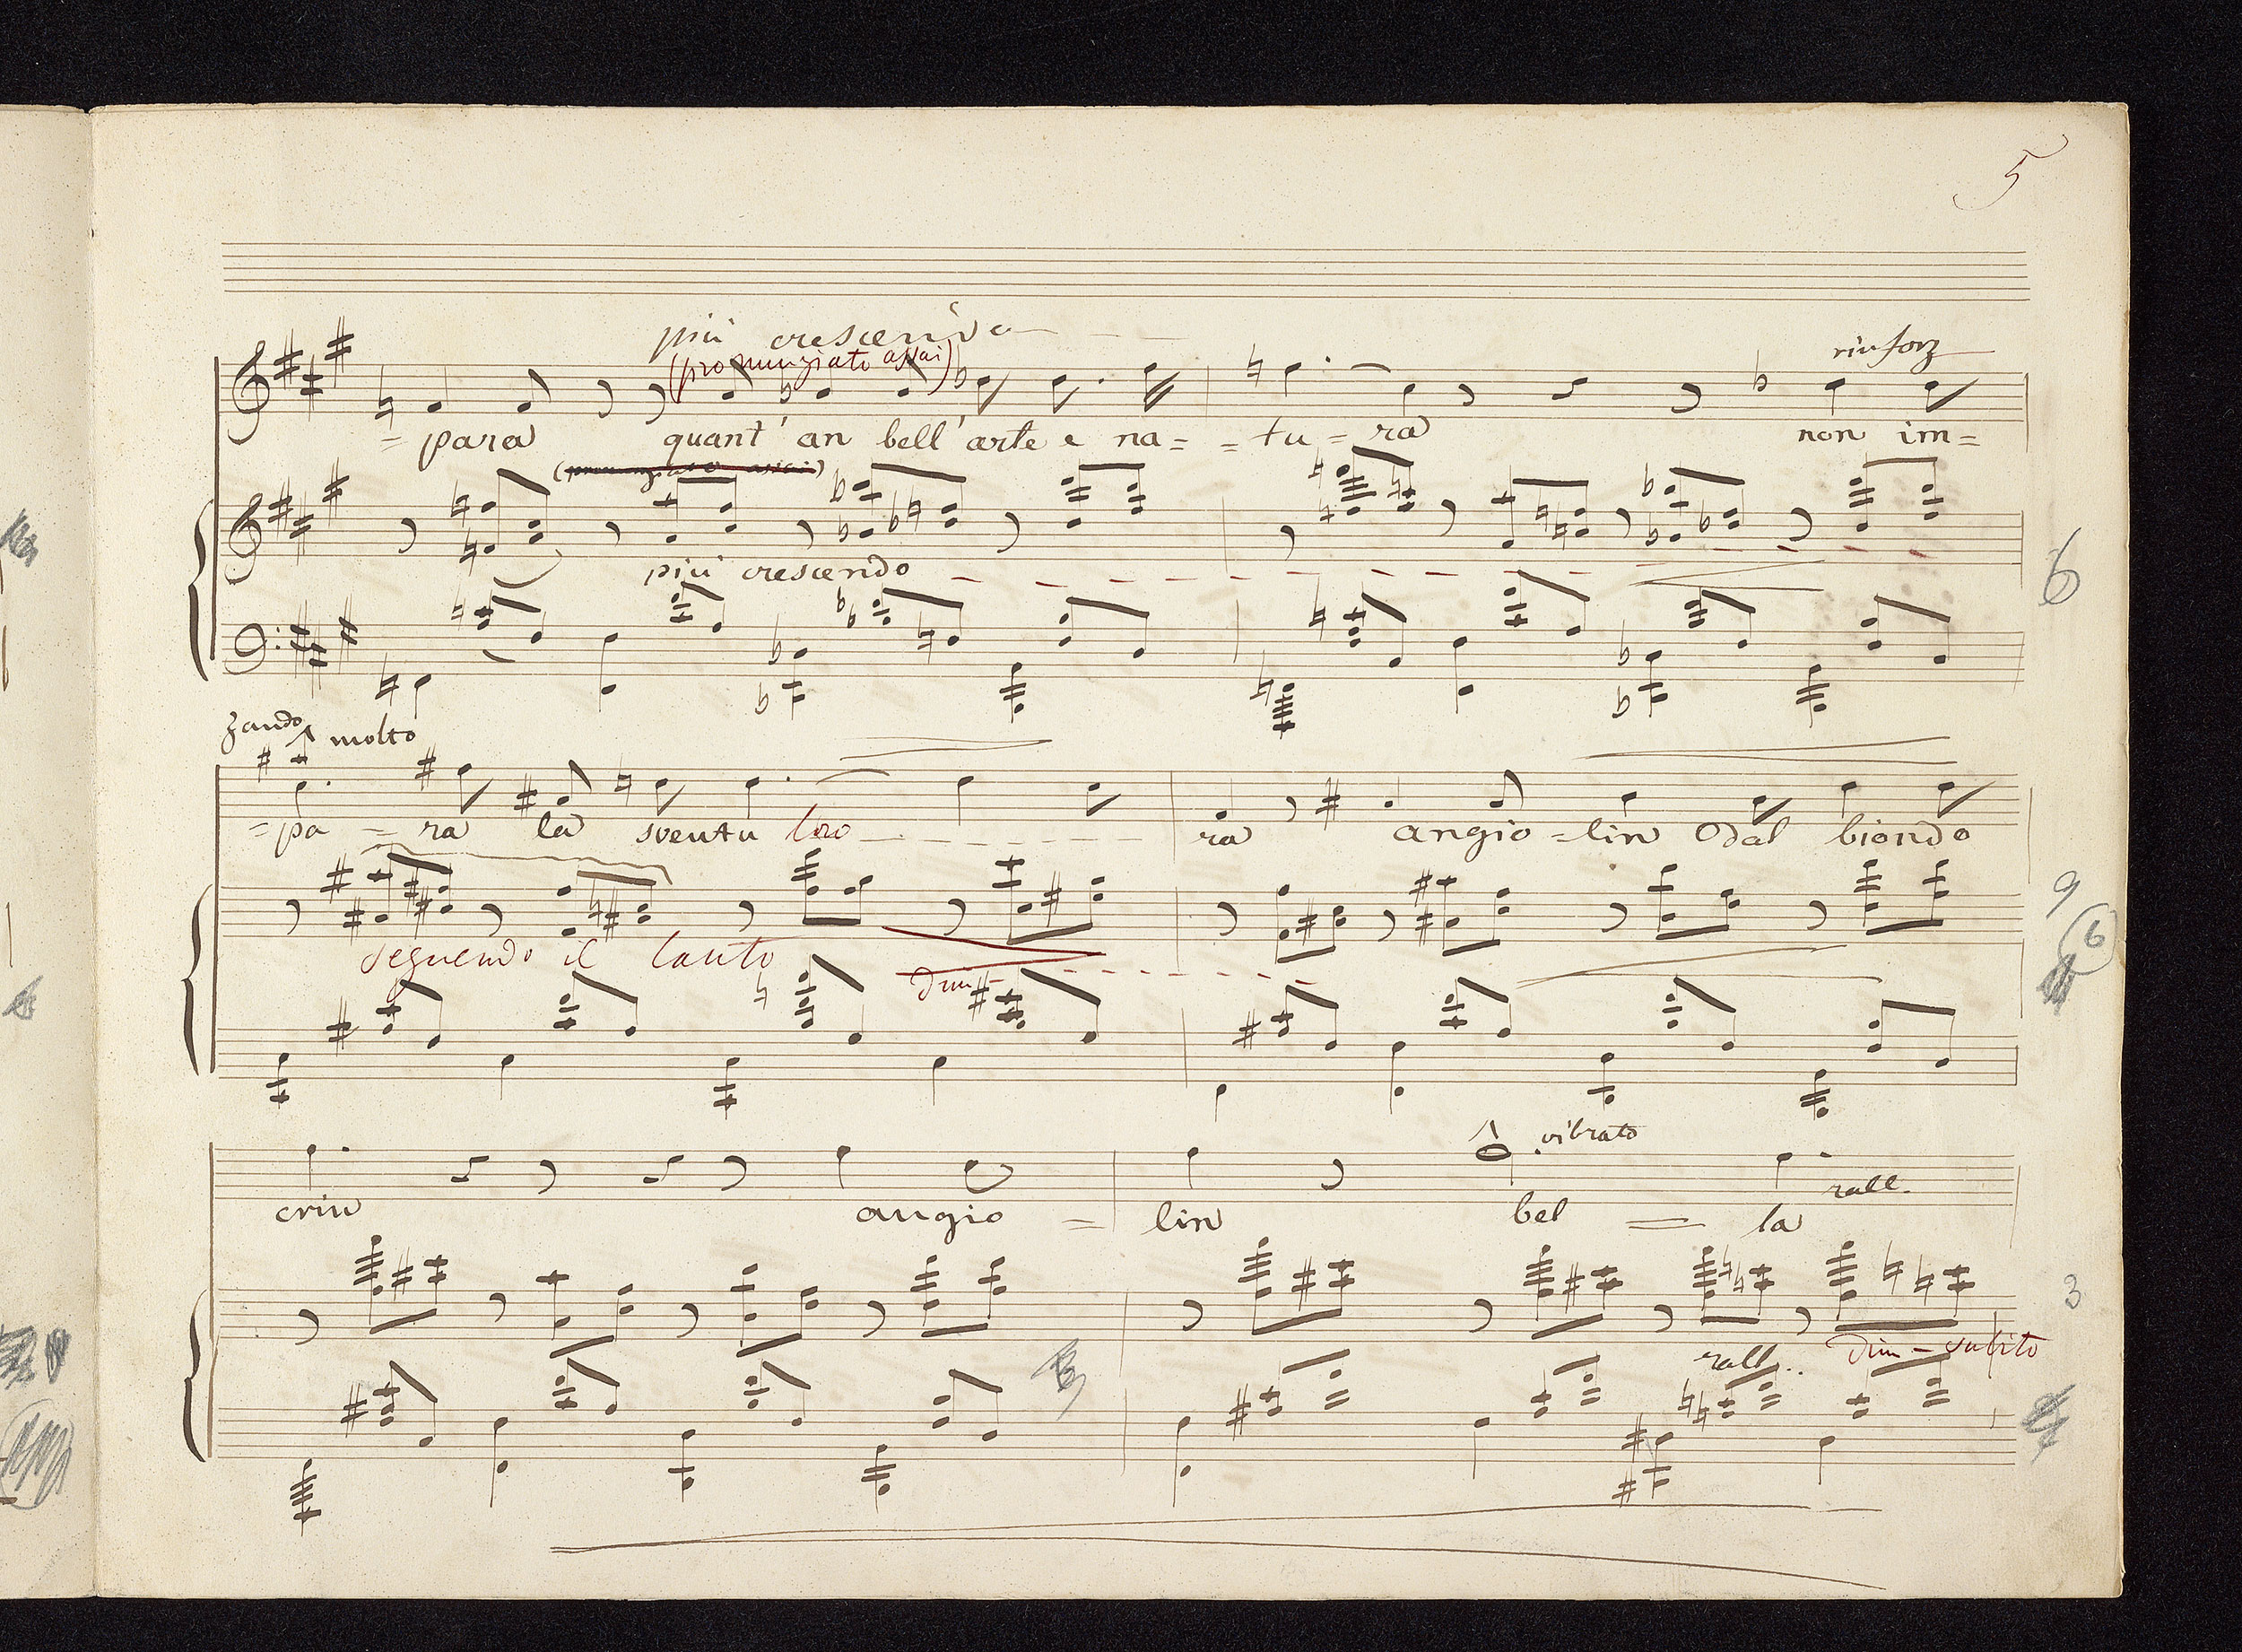 5
più crescendo
(pronunziato assai)
rinforz
= para quant' an bell' arte e na= =tu=ra non im=
(pronunziato assai)
più crescendo
6
zando molto
=pa=ra la sventu loro ra angio=lin Odal biondo
9
6
seguendo il canto
dim
vibrato
rall.
crin angio = lin bel = la
3
rall.. dim - subito